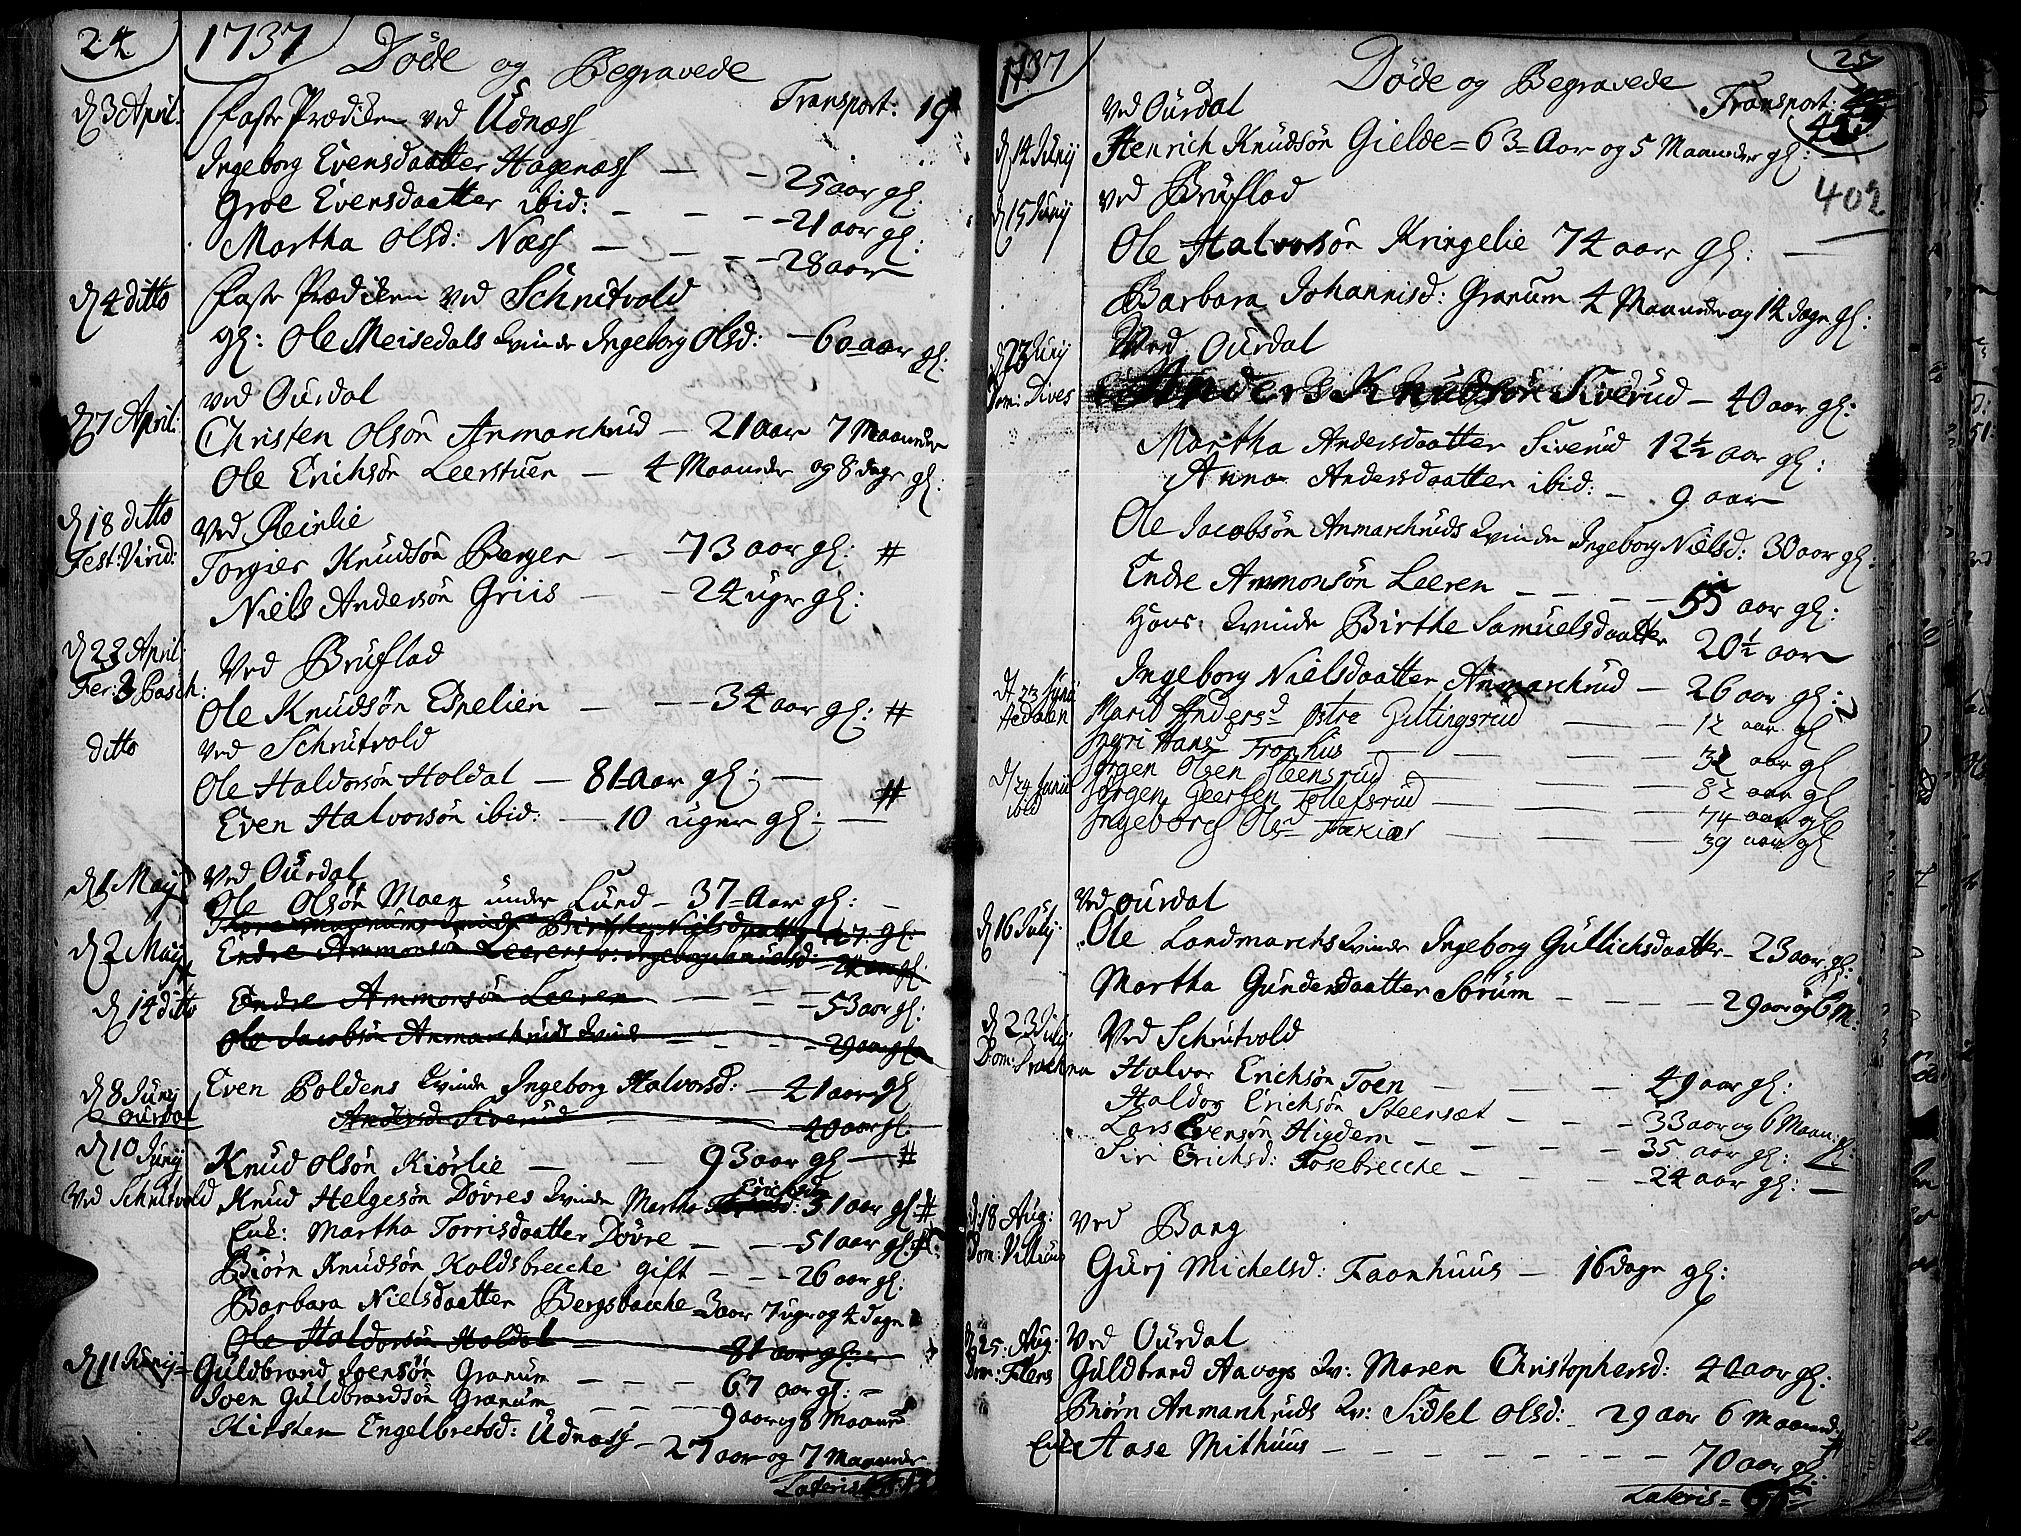 24 1737 Döde og Begravede
Transport: 19
d 3 April: Faste Prædiken ved Udness
Ingeborg Evensdaatter Hageness — — 25 aar gl:
Groe Evensdaatter ibid: — — — 21 aar gl:
Martha Olsd: Næss — — — 28 aar
d 4 ditto Faste Prædiken ved Schrutvold
gl: Ole Meisedals Kvinde Ingeborg Olsd: — 60 aar gl:
ved Ourdal
d 7 April: Christen Olsön Anmarchrud — 21 aar 7 Maaneder
Ole Erichsön Leerstuen — 4 Maaneder og 8 dage gl:
d 18 ditto Ved Reinlie
Fest: Virid: Torgier Knudsön Bergen — 73 aar gl: #
Niels Andersön Griis — — 24 uger gl:
d 23 April: Ved Bruflad
Fer: 3 Pasch: Ole Knudsön Espelien — — 34 aar gl: #
ditto ved Schrutvold
Ole Haldorsön Holdal — 81 Aar gl: —
Even Halvorsön ibid: — 10 uger gl: — #
d 1 May Ved Ourdal
Ole Olsön Moen under Lund — 37 = Aar gl: —
d 2 May
Endre Ammonsön Leerens
d 14 ditto Endre Ammonsön Leeren — — — 53 aar gl:
Ole Jacobsön Anmarchruds Kvinde — — — 29 aar gl:
d 8 Junij Even Boldens Kvinde Ingeborg Halvorsd: — 41 aar gl
Ourdal
Andersd Siverud — — 40 aar gl.
d 10 Junij Knud Olsön Kiörlie — — 93 aar gl — #
Ved Schrutvold Knud Helgesön Dövres Kvinde Martha Erichsd: 31 aar gl #
Enk: Martha Torrisdaatter Dövre — — 51 aar gl: #
Biörn Knudsön Koldsbrecche gift — — 26 aar gl:
Barbara Nielsdaatter Bergsbacche = 3 aar 7 uger og 4 dage
Ole Haldorsön Holdal — 81 aar gl:
d 11 Junij = Guldbrand Joensön Granum — — — 67 aar gl: =
Joen Guldbrandsön Granum — — — 9 aar og 8 Maaned
Kirsten Engelbretsd: Udness — 27 aar og 7 Maaneder
Lateris
1737 Döde og Begravede 25
Transport:
402
ved Ourdal
d 14 Junij Henrich Knudsön Gielde = 63 = Aar og 5 Maaneder gl:
d 15 Junij ved Bruflad
Ole Halvorsön Kringelie 74 aar gl: —
Barbara Johannisd: Granum 4 Maaneder og 14 dage gl:
Junij Ved Ourdal
Dom: Dives Anders Knudsön Siverud — 40 aar gl:
Martha Andersdaatter Siverud 12½ aar gl:
Anna Andersdaatter ibid: — 9 aar
Ole Jacobsön Anmarchruds Kvinde Ingeborg Nielsd: 30 aar gl:
Endre Ammonsön Leeren — — — — 55 aar gl:
Hans Kvinde Birthe Samuelsdaatter 20½ aar
Ingeborg Nielsdaatter Anmarchrud — 26 aar gl:
d 23 Junii Marit Andersd Östre Giltingsrud — — 12 aar gl
Hedalen Ingri Hansd Fronhus — — — aar gl
Jörgen Olsen Steensrud — — — 82 aar gl
d 24 Junii Jörgen Geersen Tollefsrud — — — 74 aar gl
ibid Ingeborg Olsd — — — 39 aar gl
Ved Ourdal
d 16 Julij: Ole Landmarchs Kvinde Ingeborg Güllichsdaatter — 23 aar gl:
Martha Gundersdaatter Sörum — — — — 29 aar og 6 M:
d 23 Julij: Ved Schrutvold
Halvor Erichsön Toen — — — 49 aar gl:
Haldor Erichsön Steensæt — — — 33 aar og 6 Maan: gl:
Lars Evensön Higdem — — — 35 aar gl:
Siri Erichsd: Fosebrecche — — — 24 aar gl: —
d 18 Aug: Ved Bang
Dom: Villicus Gurj Michelsd: Faanhuus — 16 dage gl:
d 25: Aug: Ved Ourdal
Dom: Flens Guldbrand Aavogs Kv: Maren Christophersd: 40 aar gl:
Biörn Anmarchruds Kv: Sidsel Olsd: 29 aar 6 Maaned:
Enk: Aase Mithuus — — — — — — 70 aar gl:
Lateris =